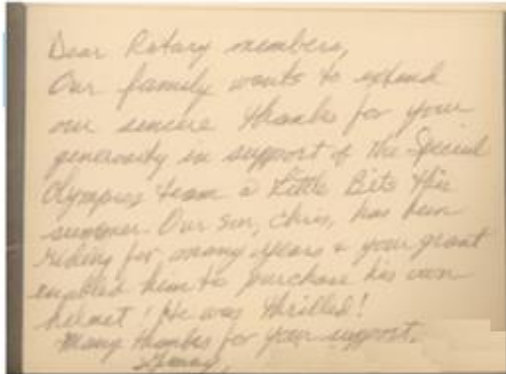 Dear Rotary members,
Our family wants to extend
our sincere thanks for your
generosity in support of the Special
Olympics team @ Little Bits this
summer. Our son, Chris, has been
riding for many years & your grant
enabled him to purchase his own
helmet! He was thrilled!
Many thanks for your support.